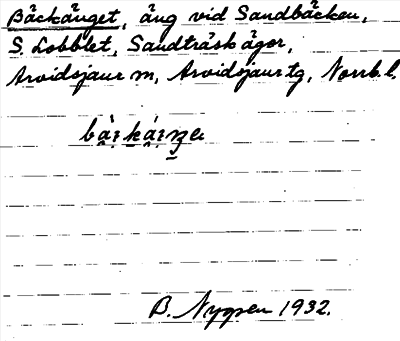 Bäckänget, äng vid Sandbäcken,
S. Lobblet, Sandträsk ägor,
Arvidsjaur m, Arvidsjaur tg, Norrb. l.
B. Nygren 1932.